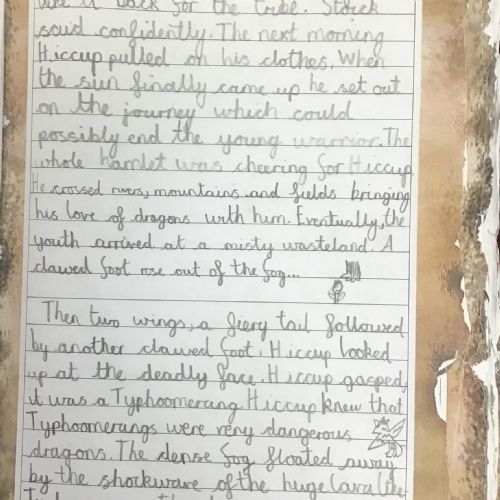 back for the tribe. Stoick
said confidently. The next morning
Hiccup pulled on his clothes. When
the sun finally came up he set out
on the journey which could
possibly end the young warrior. The
whole hamlet was cheering for Hiccup.
He crossed rivers, mountains and fields bringing
his love of dragons with him. Eventually, the
youth arrived at a misty wasteland. A
clawed foot rose out of the fog...
Then two wings, a fiery tail followed
by another clawed foot. Hiccup looked
up at the deadly face. Hiccup gasped,
it was a Typhoomerang. Hiccup knew that
Typhoomerangs were very dangerous
dragons. The dense fog floated away
by the shockwave of the huge lava like